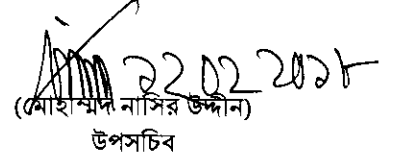 ২২.০২.২০১৮
(মোহাম্মদ নাসির উদ্দীন)
উপসচিব